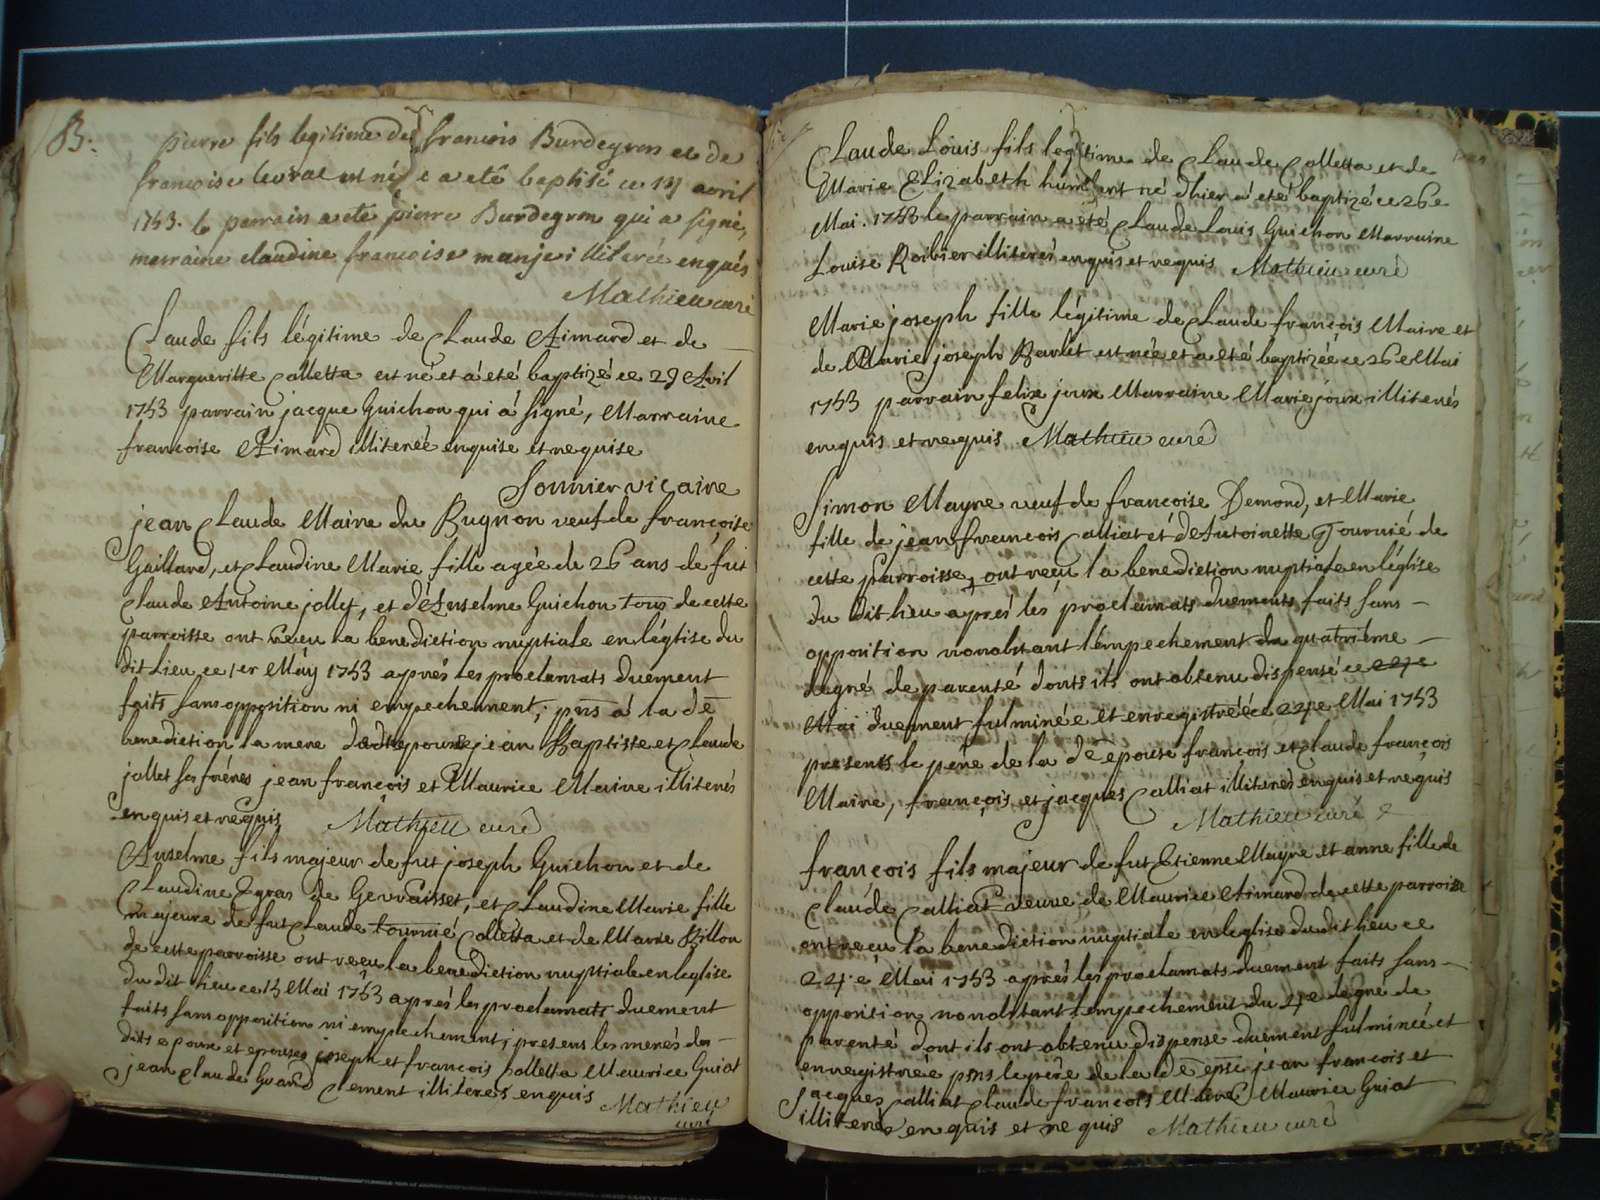 B.
pierre fils legitime de francois Burdeyron et de
francoise levrat est né e a eté baptisé ce avril
1753. le parrain a eté pierre Burdeyron qui a signé,
marraine claudine francoise illiterée enquis
Mathieu curé
Claude fils légitime de Claude Aimard et de
Margueritte Calletta est né et a été baptizé ce 29 Avril
1753 parrain jacque Guichon qui á signé, Marraine
francoise Aimard illiterée enquise et requise
Sonnier vicaire
jean Claude Maire du Bugnon veuf de françoise
Gaillard, et Claudine Marie fille agée de 26 ans de fut
Claude Antoine jollet, et d'Anselme Guichon tous de cette
parroisse ont reçu la benediction nuptiale en léglise du
dit Lieu ce 1er Máy 1753 aprés les proclamats duement
faits sans opposition ni empechement, pns á la de
benediction la mere jean Baptiste et Claude
jollet ses fréres jean françois et Maurice Maire illiterés
enquis et requis Mathieu curé
Anselme fils majeur de fut joseph Guichon et de
Claudine Egras de Gervaisset, et Claudine Marie fille
majeure de fut Claude tournié Colletta et de Marie Billon
de cette parroisse ont reçu la benediction nuptiale en leglise
du dit lieu ce Mai 1753 aprés les proclamats duement
faits sans opposition ni empechement, presens les merés des
dits epoux et epouses joseph et francois Colletta Maurice Guiot
jean Claude Grand Clement illiterés enquis Mathieu
curé
Claude Louis fils legitime de Claude Colletta et de
Marie Elizabeth humbert né d'hier a été baptizé ce 26e
Mai. 1753 le parrain a été Claude Louis Guichon Marraine
Louise Roibier illiterés enquis et requis Mathieu curé
Marie joseph fille légitime de Claude françois Maire et
de Marie joseph Barlet est née et a été baptizée ce 26e Mai
1753 parrain felix joux Marraine Marie joux illiterés
enquis et requis Mathieu curé
Simon Mayre veuf de françoise Demond, et Marie
fille de jean francois Calliat et d'Antoinette Tournié de
cette parroisse, ont reçu la benediction nuptiale en léglise
du dit lieu aprés les proclamats duements faits sans
opposition nonobstant l'émpechement du quatriéme
degré de parenté donts ils ont obtenu dispense ce 22e
Mai duement fulminée et enregistrée ce 24e Mai 1753
presents le pére de la de epouse françois et Claude françois
Maire, françois et jacques Calliat illiterés enquis et requis
Mathieu curé
françois fils majeur de fut Etienne Mayre et anne fille de
Claude Calliat veuve de Maurice Aimard de cette parroisse
ont reçu la benediction nuptiale en léglise du dit lieu ce
24e Mai 1753 aprés les proclamats duement faits sans
opposition nonobstant l'empechement du 4e degré de
parenté dont ils ont obtenu dispense duement fulminée et
enregistrée pns le pére de la de epse jean francois et
jacques Calliat Claude francois Maire Maurice Guiot
illiterés enquis et requis Mathieu curé